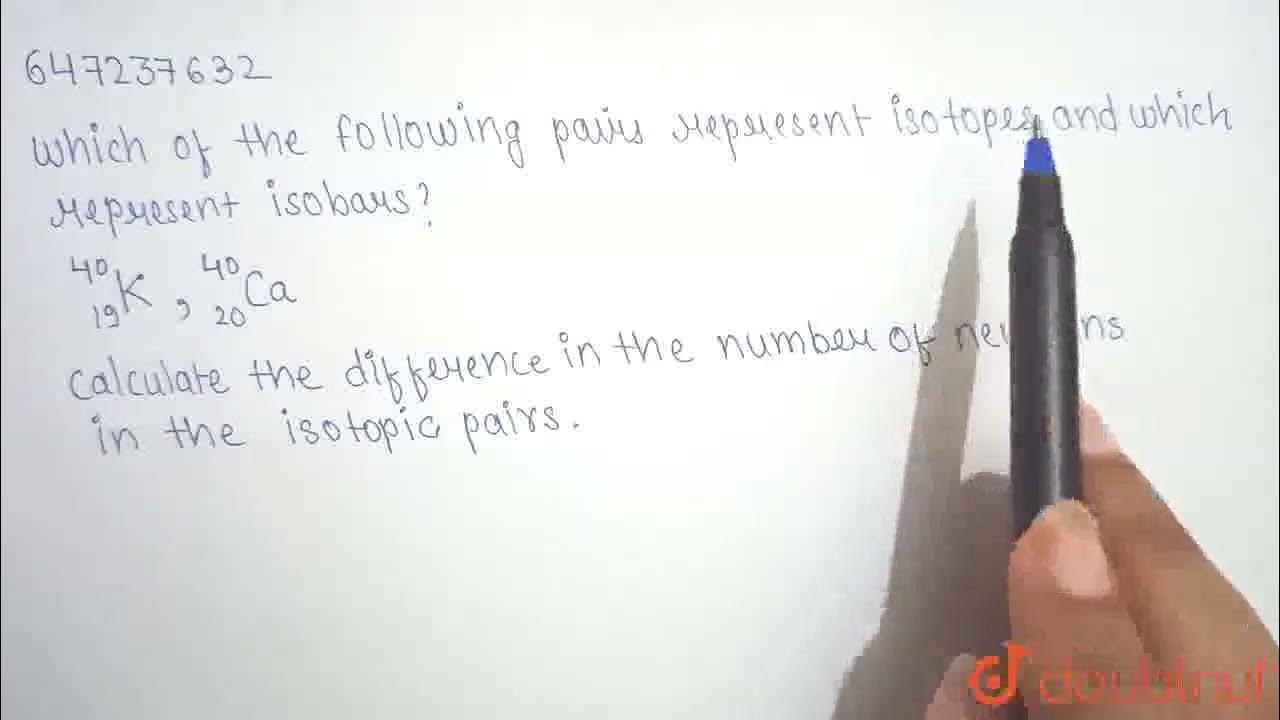 647237632
which of the following pairs represent isotopes and which
represent isobars?
40 19 K , 40 20 Ca
calculate the difference in the number of
in the isotopic pairs.
doubtnut